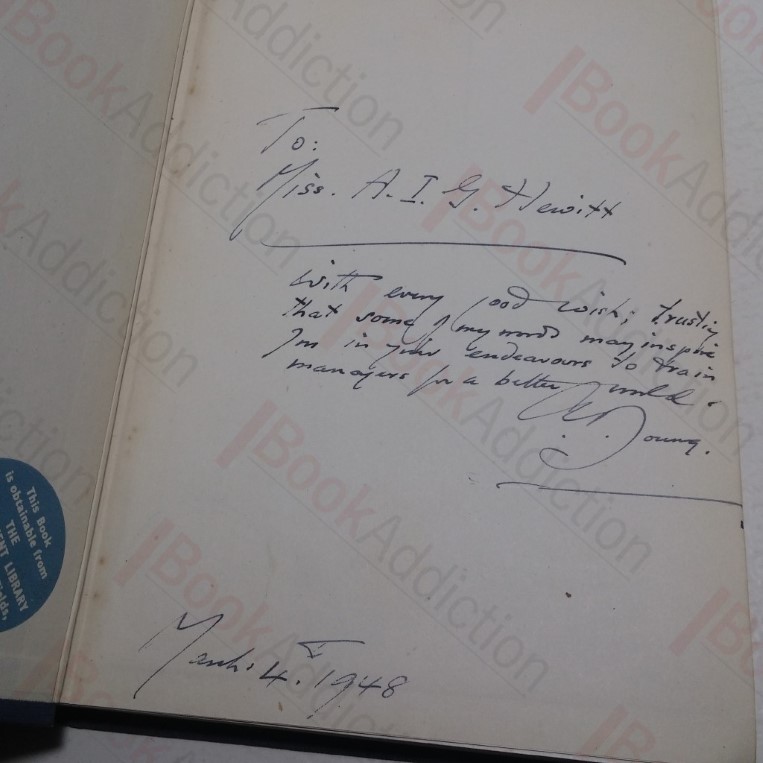 To:
Miss. A. I. G. Hewitt
With every good wish; trusting
that some of my words may inspire
in your endeavours to train
managers for a better world.
Young.
March. 4. 1948
This Book
is obtainable from
THE
ENT LIBRARY
elds,
BookAddiction